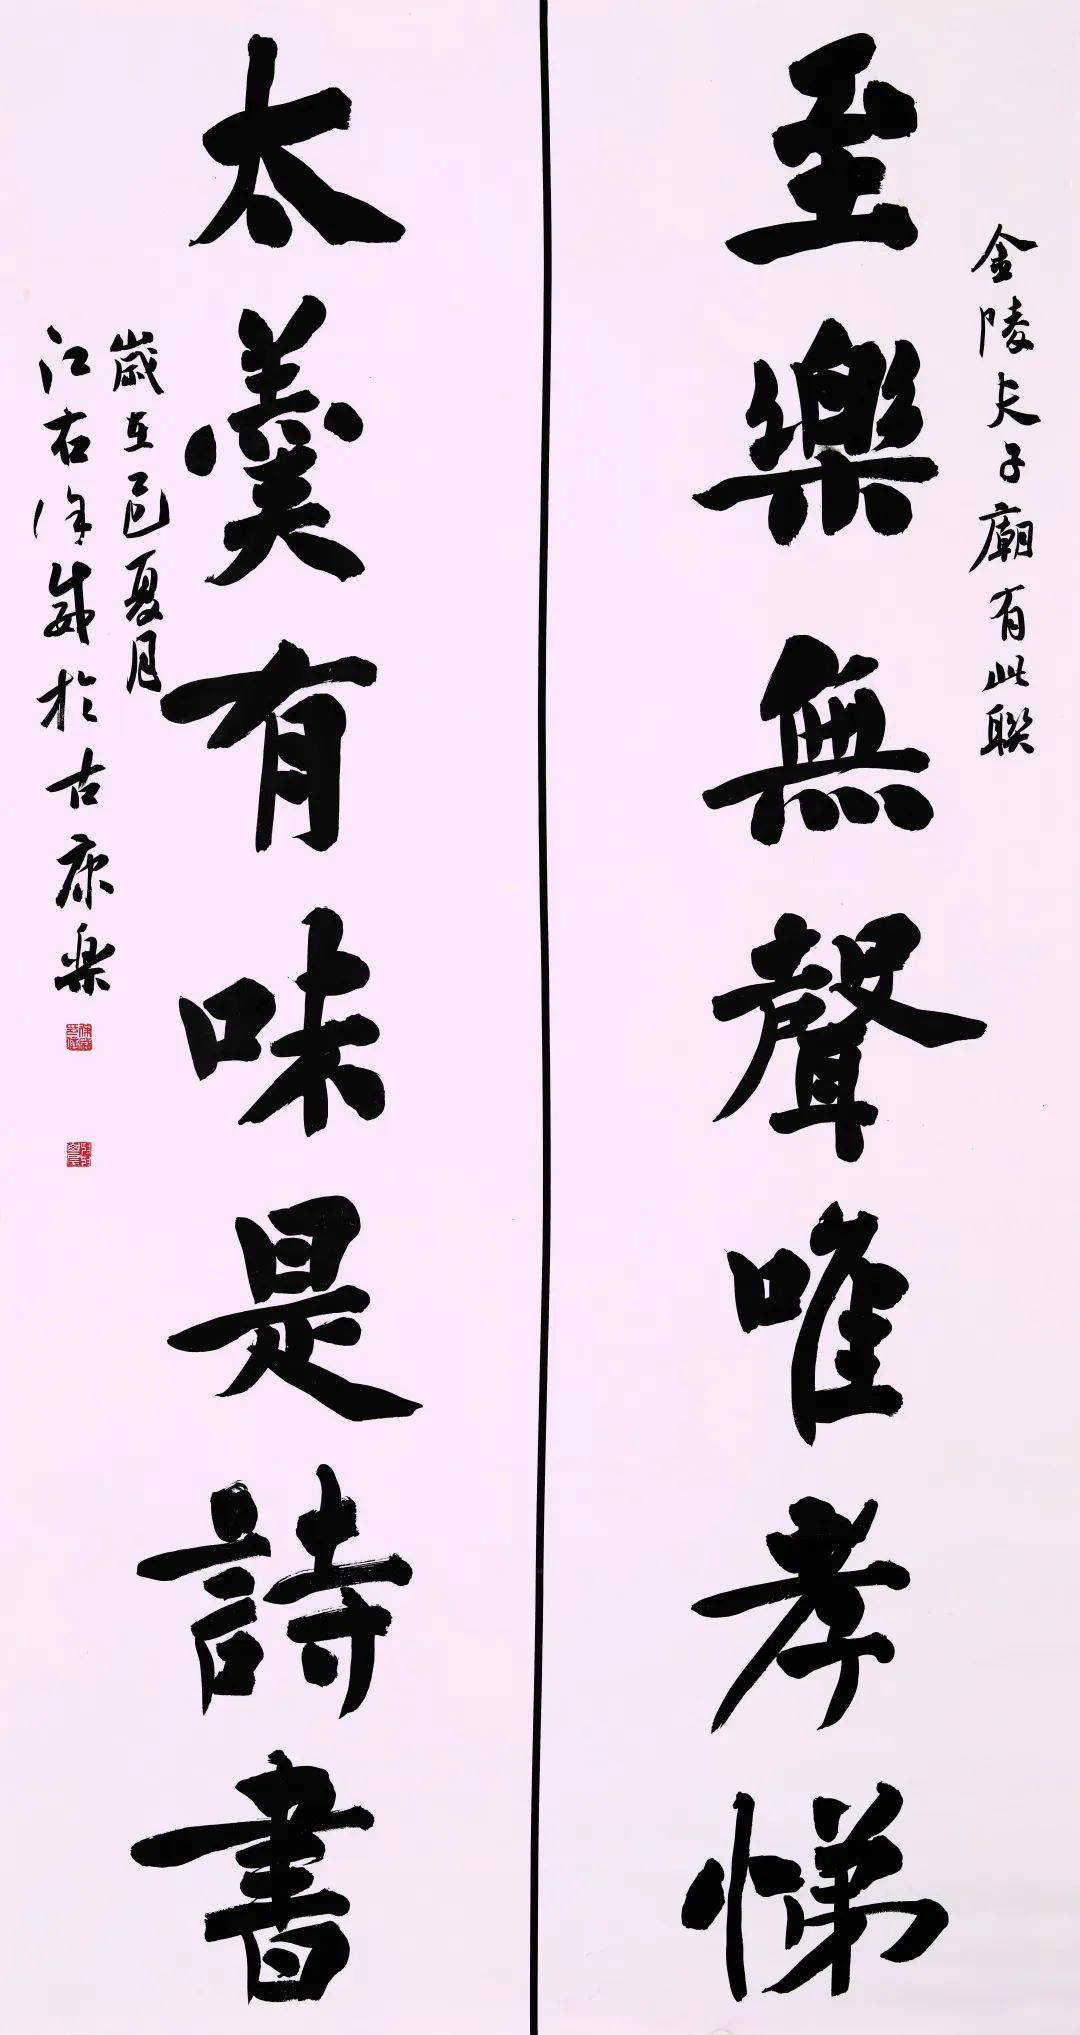 金陵夫子廟有此聯
至樂無聲唯孝悌
太羹有味是詩書
歲在乙巳夏月
江右徐於古康樂